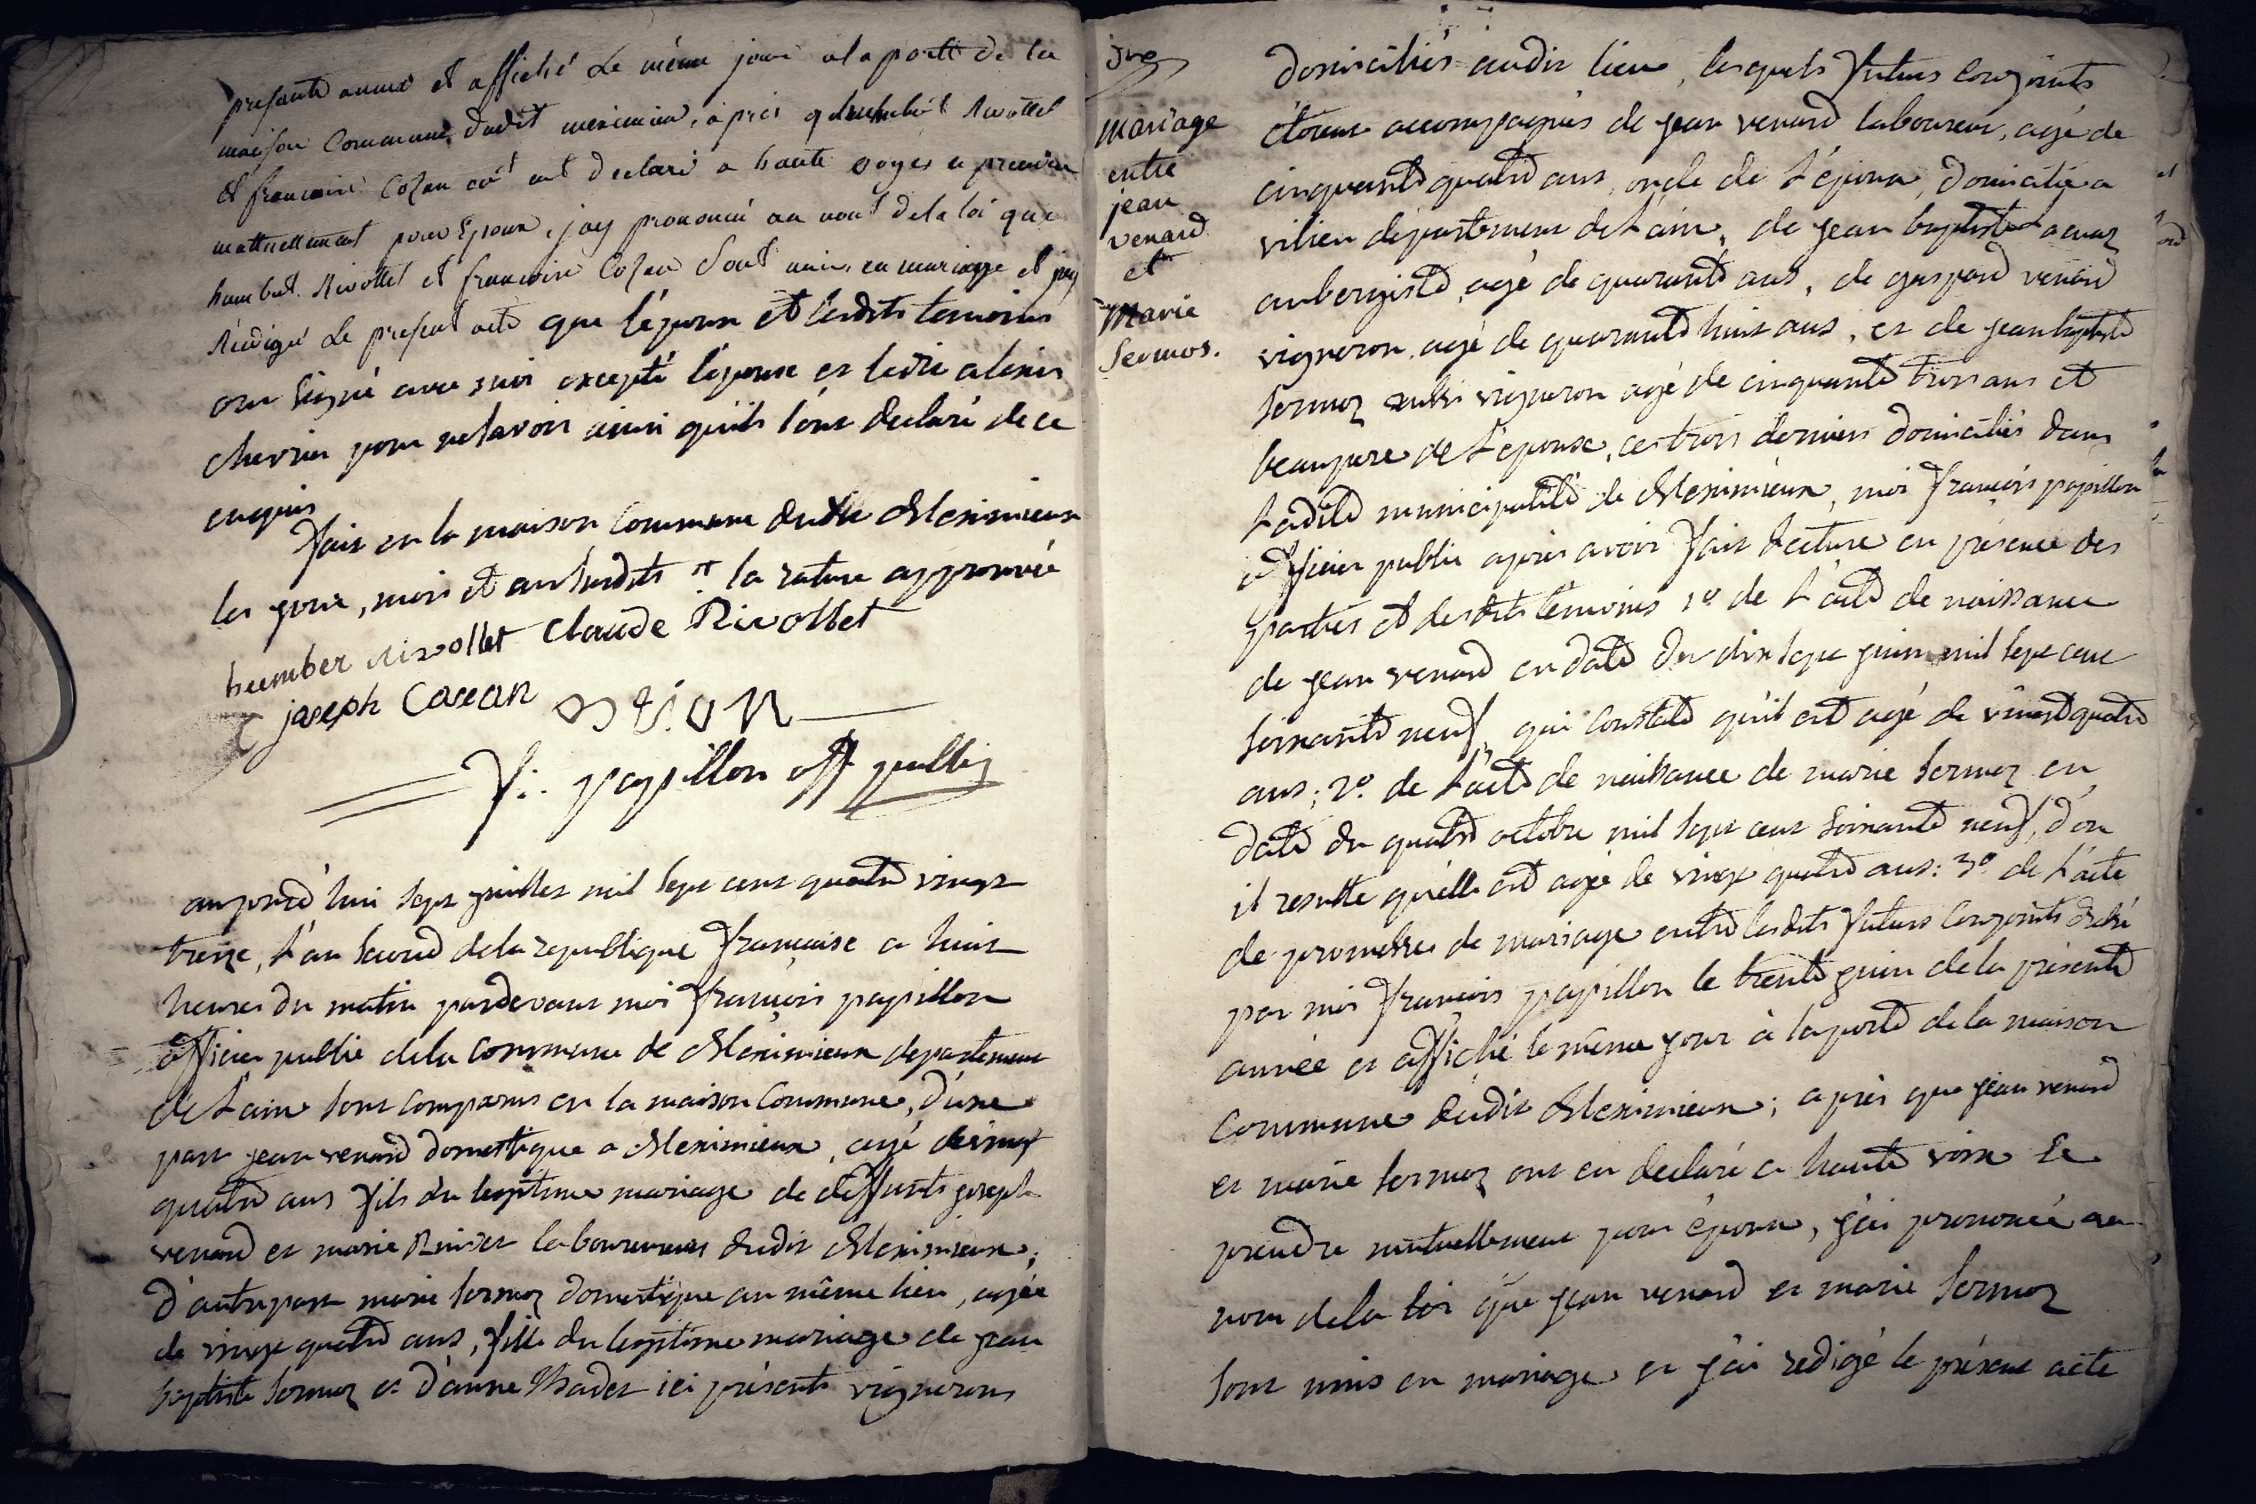 presante année et affiché Le même jour a la porte de la
maison Commune dudit meximieu, après q humbert Rivollet
Et francoise Cozan ont declaré a haute
mattuellement pour Epoux, jay prononcé au nom de la loi que
humbert Rivollet et francoise Cozan Sont unis en mariage et jay
Rédigé Le present acte que l'époux et lesdits temoins
ont signé avec moi excepté l'épouse et ledit alexis
chevrier pour ne savoir ainsi qu'ils l'ont declaré de ce
enquis
Fait en la maison commune dudit Meximieux
les jour, mois et an susdits la rature approuvée
humber rivollet Claude Rivollet
joseph Caxan
F. papillon off public
aujourd'hui sept juillet mil sept cent quatre vingt
treize, l'an second de la republique française a huit
heures du matin pardevant moi François papillon
officier public de la commune de Meximieux departement
de l'ain sont comparus en la maison commune, d'une
part jean venard domestique a Meximieux, agé de vingt
quatre ans fils du legitime mariage de deffunts joseph
venard et marie laboureurs dudit Meximieux;
d'autre part marie sermoz domestique au même lieu, agée
de vingt quatre ans, fille du legitime mariage de jean
baptiste sermoz et d'anne ici présents vignerons
mariage
entre
jean
venard
et
Marie
Sermos.
domiciliés audit lieu, lesquels futurs conjoints
étoient accompagnés de jean venard laboureur, agé de
cinquante quatre ans, oncle de l'époux, domicilié a
vilieu département de l'ain, de jean baptiste
aubergiste, agé de quarante ans, de gaspard venard
vigneron, agé de quarante huit ans, et de jean baptiste
sermoz aussi vigneron agé de cinquante trois ans et
beaupere de l'épouse, ces trois derniers domiciliés dans
ladite municipalité de Meximieux, moi françois papillon
officier public après avoir fait lecture en présence des
parties et desdits temoins 1o de l'acte de naissance
de jean venard en date du dix sept juin mil sept cent
soixante neuf, qui constate qu'il est agé de vingt quatre
ans; 2o. de l'acte de naissance de marie sermoz en
date du quatre octobre mil sept cent soixante neuf, d'ou
il resulte qu'elle est agée de vingt quatre ans: 3o de l'acte
de promesse de mariage entre lesdits futurs conjoints dréssé
par moi françois papillon le trente juin de la présente
année et affiché le même jour à la porte de la maison
commune dudit Meximieux; après que jean venard
et marie sermoz ont eu declaré a haute voix se
prendre mutuellement pour époux, j'ai prononcé au
nom de la loi que jean venard et marie sermoz
sont unis en mariage et j'ai redigé le présent acte